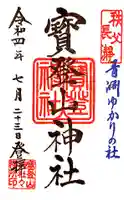 秩父
長瀞
青淵ゆかりの社
寳登山神社
令和四年
七月二十三日登拝